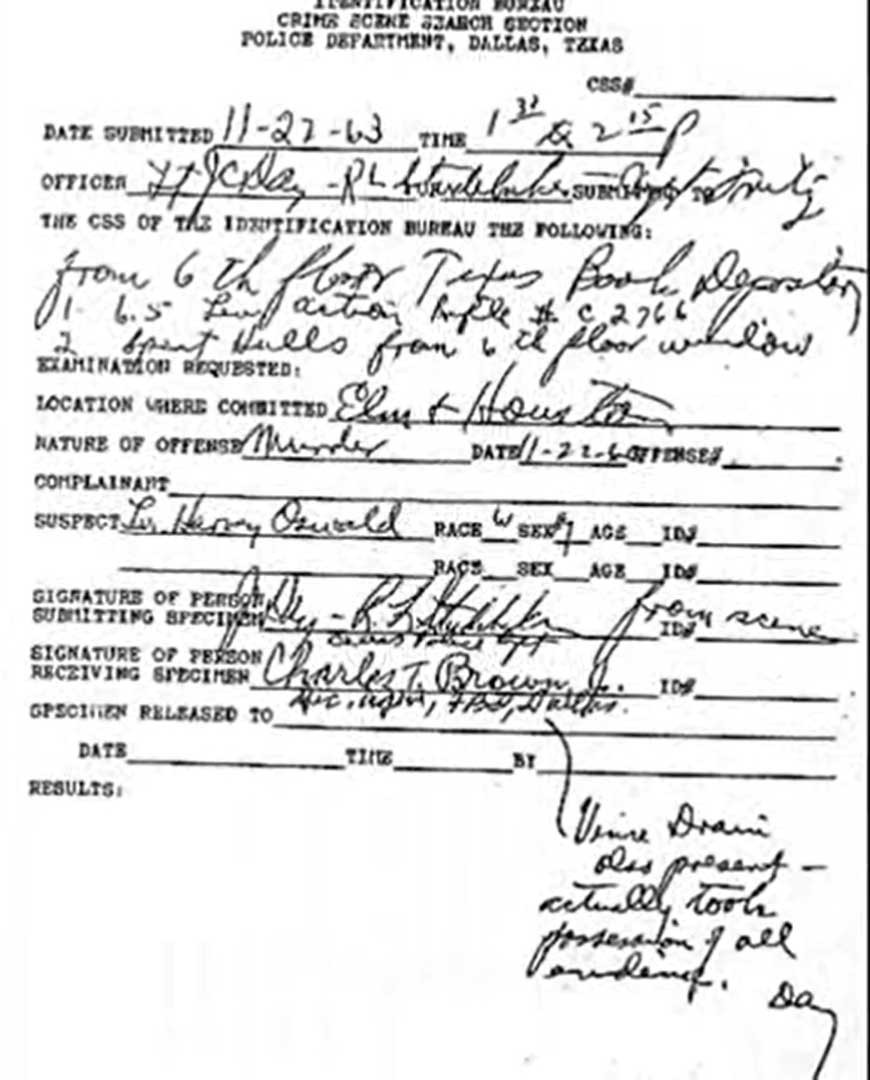 IDENTIFICATION BUREAU
CRIME SCENE SEARCH SECTION
POLICE DEPARTMENT, DALLAS, TEXAS
CSS#
DATE SUBMITTED 11-22-63 TIME 1 30 & 2 15 P
OFFICER Lt JC Day - RL Studebaker SUBMITTING TO
THE CSS OF THE IDENTIFICATION BUREAU THE FOLLOWING:
from 6 th floor Texas Book Depository
1 6.5 action Rifle # C 2766
2 Spent Hulls from 6 th floor window
EXAMINATION REQUESTED:
LOCATION WHERE COMMITTED Elm + Houston
NATURE OF OFFENSE Murder DATE 11-22-6 OFFENSE#
COMPLAINANT
SUSPECT Lee Harvey Oswald RACE W SEX AGE ID#
RACE SEX AGE ID#
SIGNATURE OF PERSON
SUBMITTING SPECIMEN Day - R L Studebaker from scene ID#
SIGNATURE OF PERSON
RECEIVING SPECIMEN Charles T. Brown, Jr. ID#
FBI, Dallas.
SPECIMEN RELEASED TO
DATE TIME BY
RESULTS:
Vince Drain
also present -
actually took
possession of all
evidence.
Day